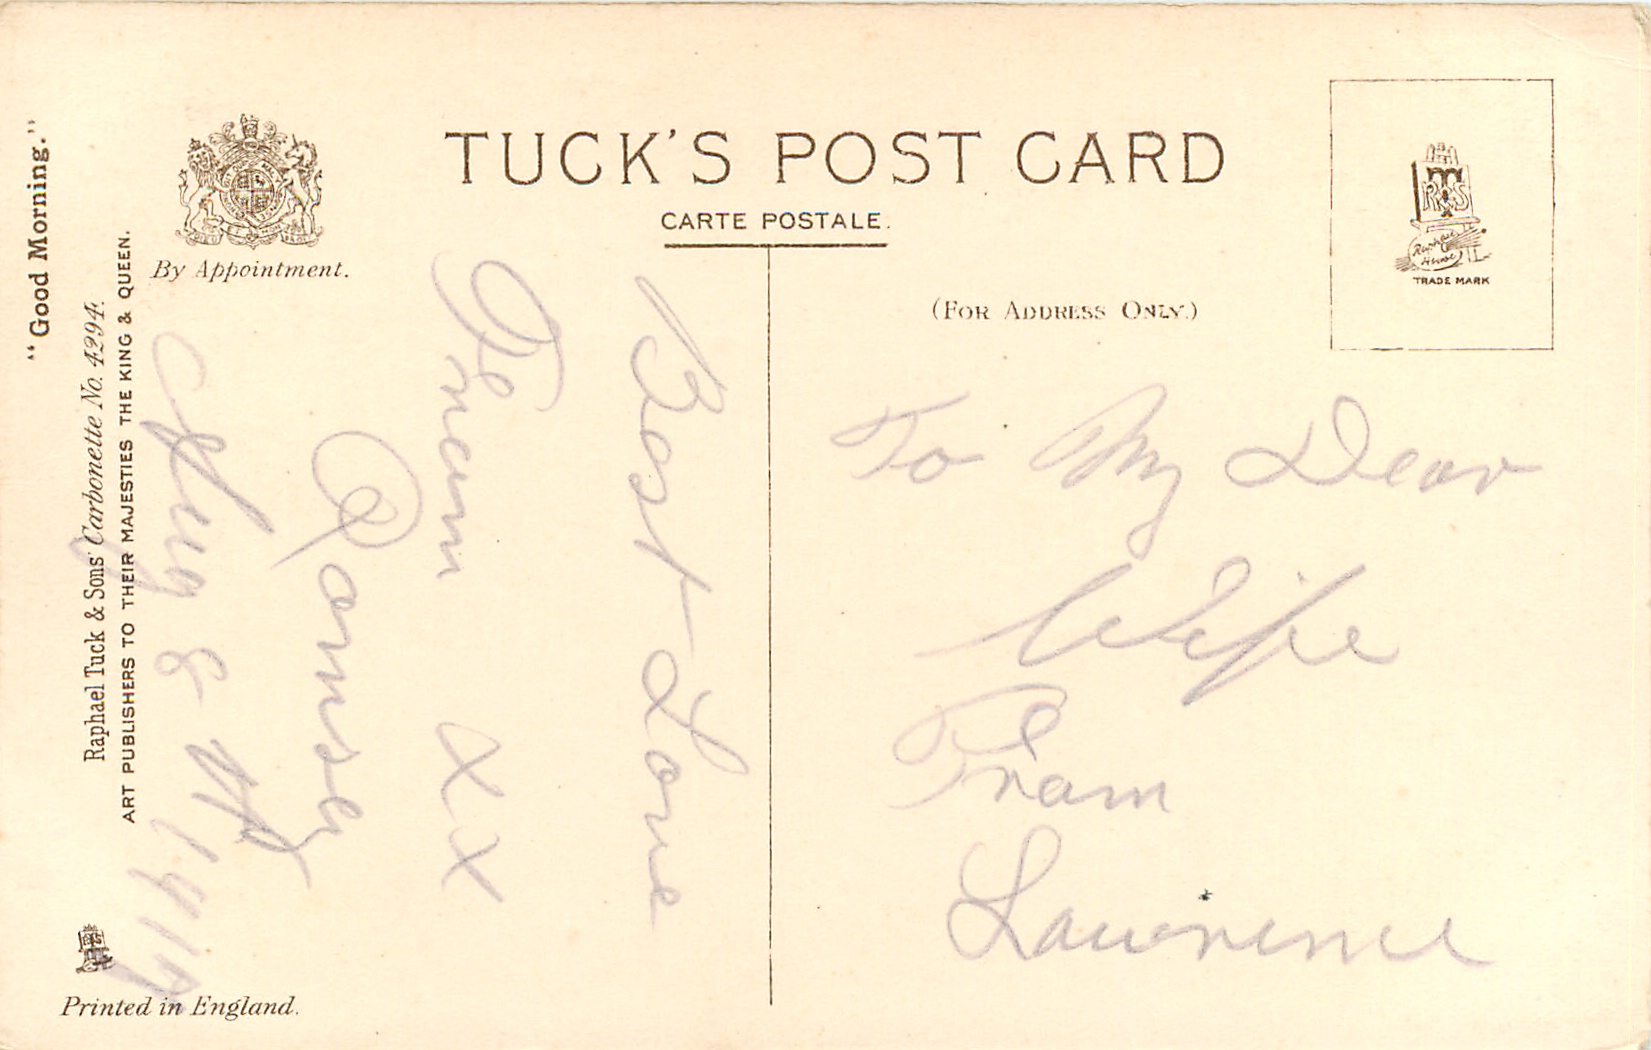 "Good Morning."
Raphael Tuck & Sons' Carbonette No. 4294.
ART PUBLISHERS TO THEIR MAJESTIES THE KING & QUEEN.
By Appointment.
TUCK'S POST CARD
CARTE POSTALE.
(FOR ADDRESS ONLY.)
TRADE MARK
Best Love
From XX
&
To My Dear
Wife
From
Lawrence
Printed in England.